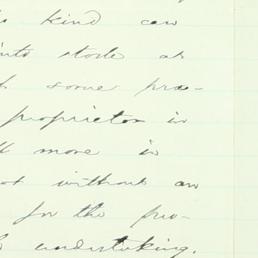 kind can
into stock at
some pro-
proprietor in
more is
not without an
for the pro-
undertaking.